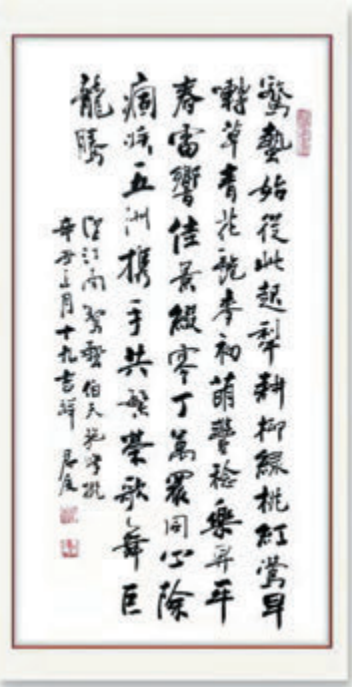 驚蟄始從此起犁耕柳綠桃紅鶯早
囀草青花艷麥初萌豐稔樂昇平
春雷響佳景綴零丁萬眾同心除
痼疾五洲携手共繁榮歌舞巨
龍騰
望江南驚蟄伯天
辛丑正月十九吉祥